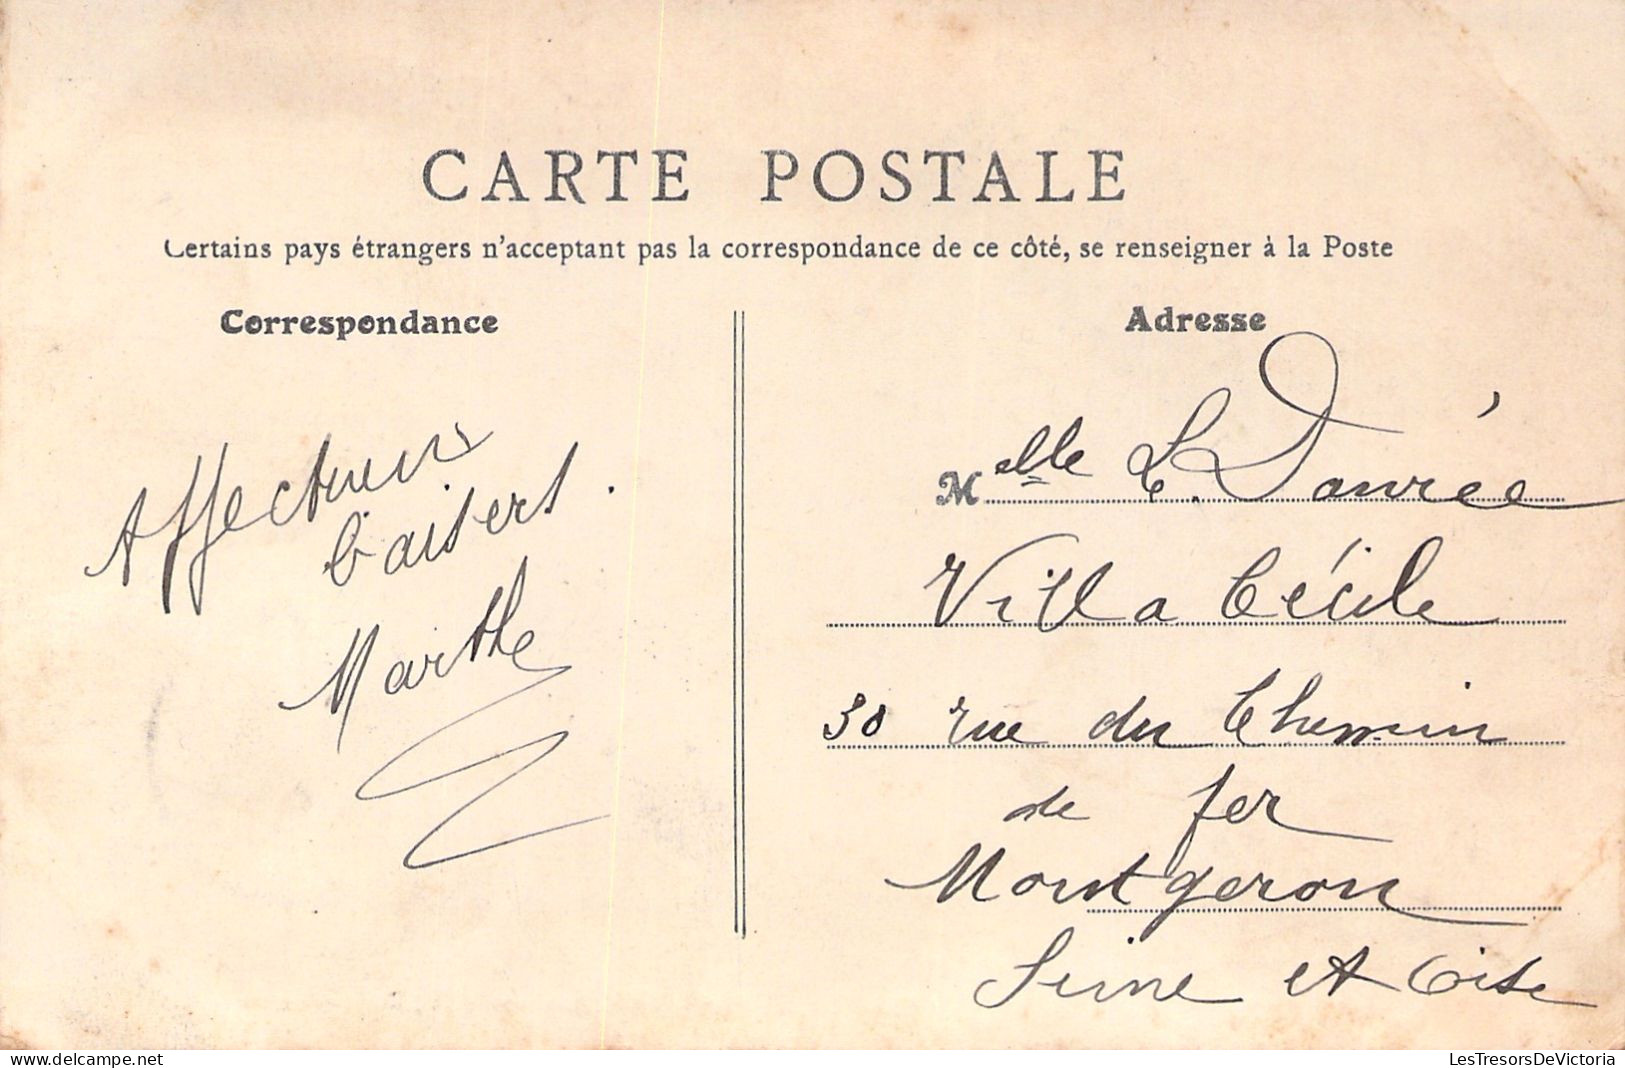 CARTE POSTALE
Certains pays étrangers n'acceptant pas la correspondance de ce côté, se renseigner à la Poste
Correspondance
Affectueux
baisers.
Marthe
Adresse
Melle L. Donrée
Villa Cécile
30 rue du Chemin
de fer
Montgeron
Seine et Oise
LesTresorsDeVictoria
delcampe.net